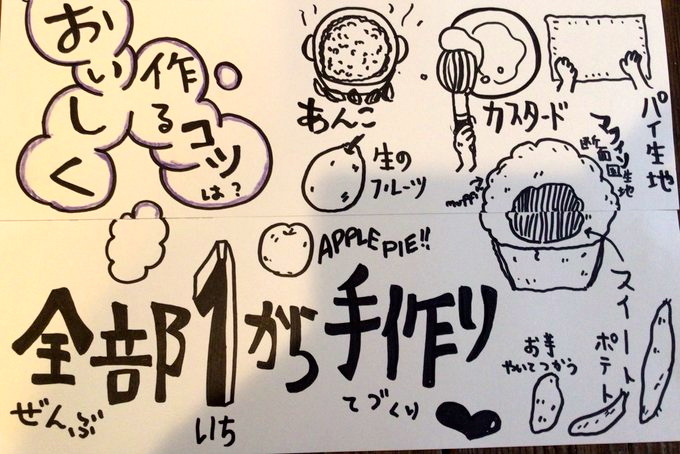 おいしく
作る
コツ
は？
あんこ
カスタード
パイ生地
生の
フルーツ
マフィン生地
断面図
muffin
APPLE PIE!!
スイート
ポテト
お芋
やいてつかう
全部1から手作り
ぜんぶ
いち
てづくり